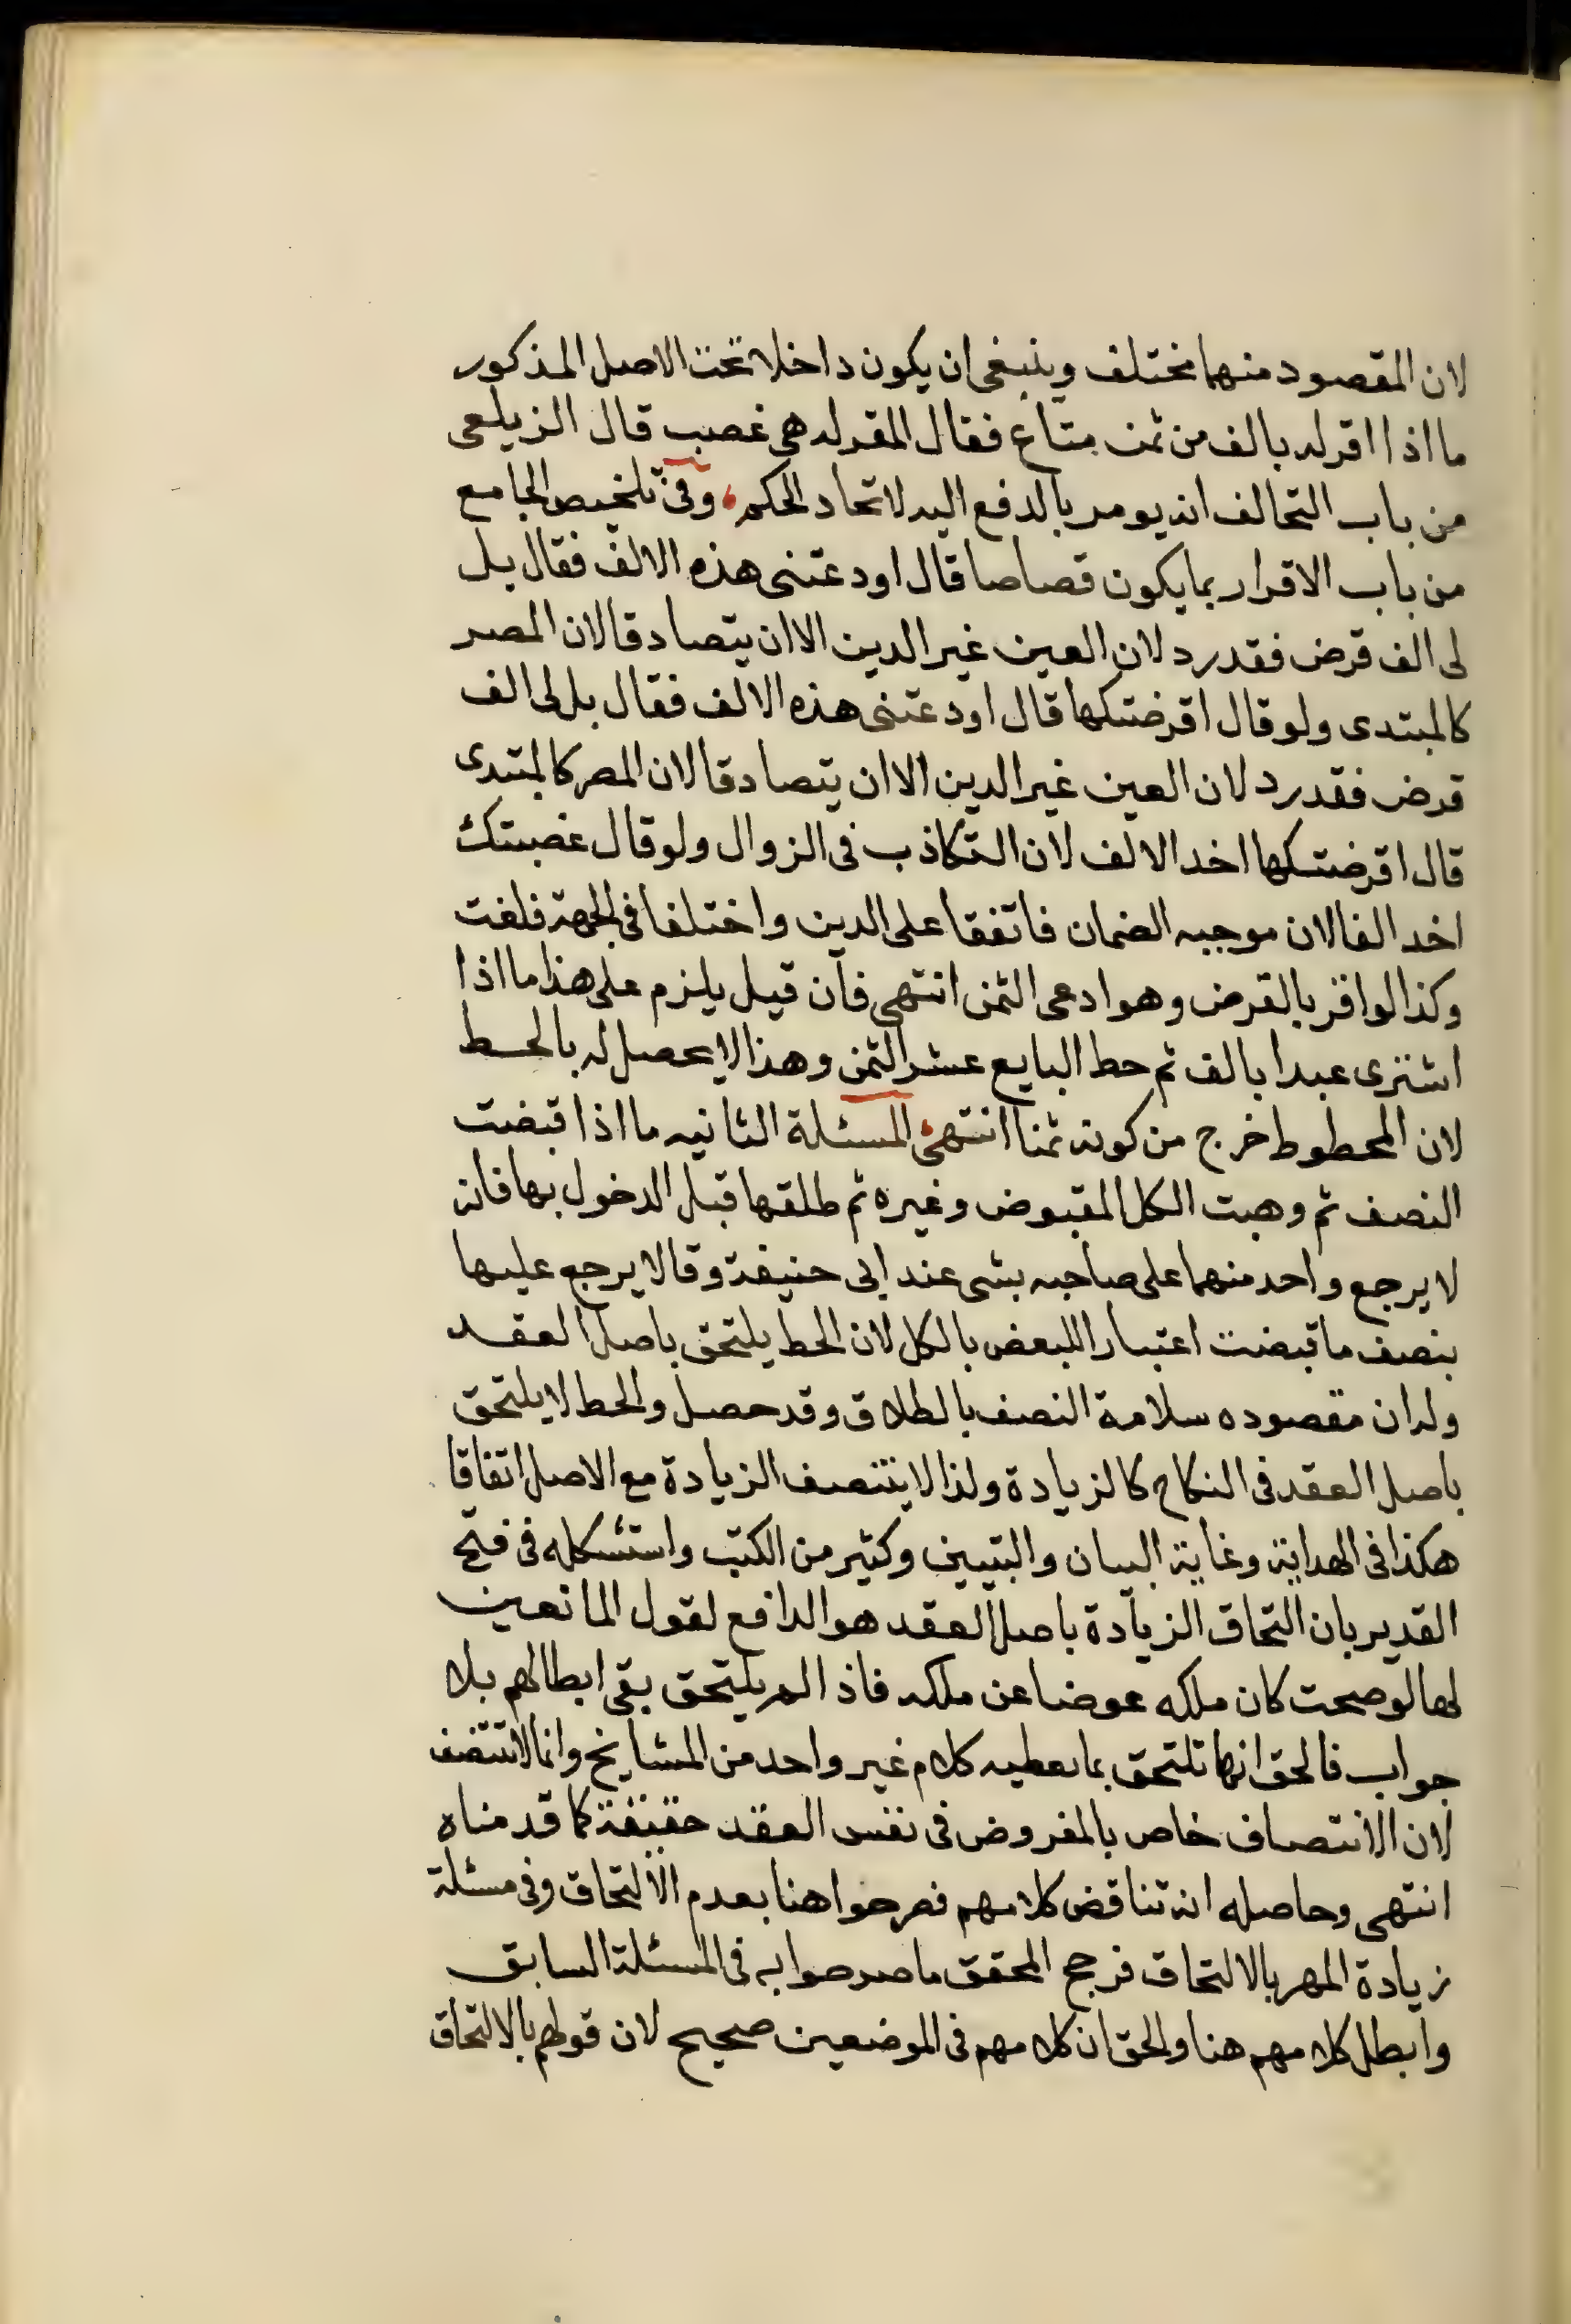 لان المقصود منهما مختلف وينبغى ان يكون داخلا تحت الاصل المذكور
ما اذا اقر له بالف من ثمن متاع فقال المقر له هى غصب قال الزيلعى
من باب التحالف انه يومر بالدفع اليه لاتحاد الحكم وفى تلخيص الجامع
من باب الاقرار بما يكون قصاصا قال اودعتنى هذه الالف فقال بل
لى الف قرض فقد رد لان العين غير الدين الا ان يتصادقا لان المصر
كالمبتدى ولو قال اقرضتكها قال اودعتنى هذه الالف فقال بل لى الف
قرض فقد رد لان العين غير الدين الا ان يتصادقا لان المصر كالمبتدى
قال اقرضتكها اخد الالف لان التكاذب فى الزوال ولو قال غصبتك
اخد الفا لان موجبه الضمان فاتفقا على الدين واختلفا فى الجهة فلغت
وكذا لو اقر بالقرض وهو ادعى الثمن انتهى فان قيل يلزم على هذا ما اذا
اشترى عبدا بالف ثم حط البايع عشر الثمن وهذا لا يحصل له بالحط
لان المحطوط خرج من كونه ثمنا انتهى المسئلة الثانيه ما اذا قبضت
النصف ثم وهبت الكل المقبوض وغيره ثم طلقها قبل الدخول بها فانه
لا يرجع واحد منهما على صاحبه بشى عند ابى حنيفة وقالا يرجع عليها
بنصف ما قبضت اعتبارا للبعض بالكل لان الحط يلتحق باصل العقد
وله ان مقصوده سلامة النصف بالطلاق وقد حصل والحط لا يلتحق
باصل العقد فى النكاح كالزيادة ولذا لا يتنصف الزيادة مع الاصل اتفاقا
هكذا فى الهداية وغاية البيان والتبيين وكثير من الكتب واستشكله فى فتح
القدير بان التحاق الزيادة باصل العقد هو الدافع لقول المانعين
لها لو صحت كان ملكه عوضا عن ملكه فاذا لم يلتحق بقى ابطالهم بلا
جواب فالحق انها تلتحق بما يعطيه كلام غير واحد من المشايخ وانما لا تتنصف
لان الانتصاف خاص بالمفروض فى نفس العقد حقيقة كما قدمناه
انتهى وحاصله انه تناقض كلامهم فصرحوا هنا بعدم الالتحاق وفى مسئلة
زيادة المهر بالالتحاق فرجح المحقق ما صرحوا به فى المسئلة السابق
وابطل كلامهم هنا والحق ان كلامهم فى الموضعين صحيح لان قولهم بالالتحاق